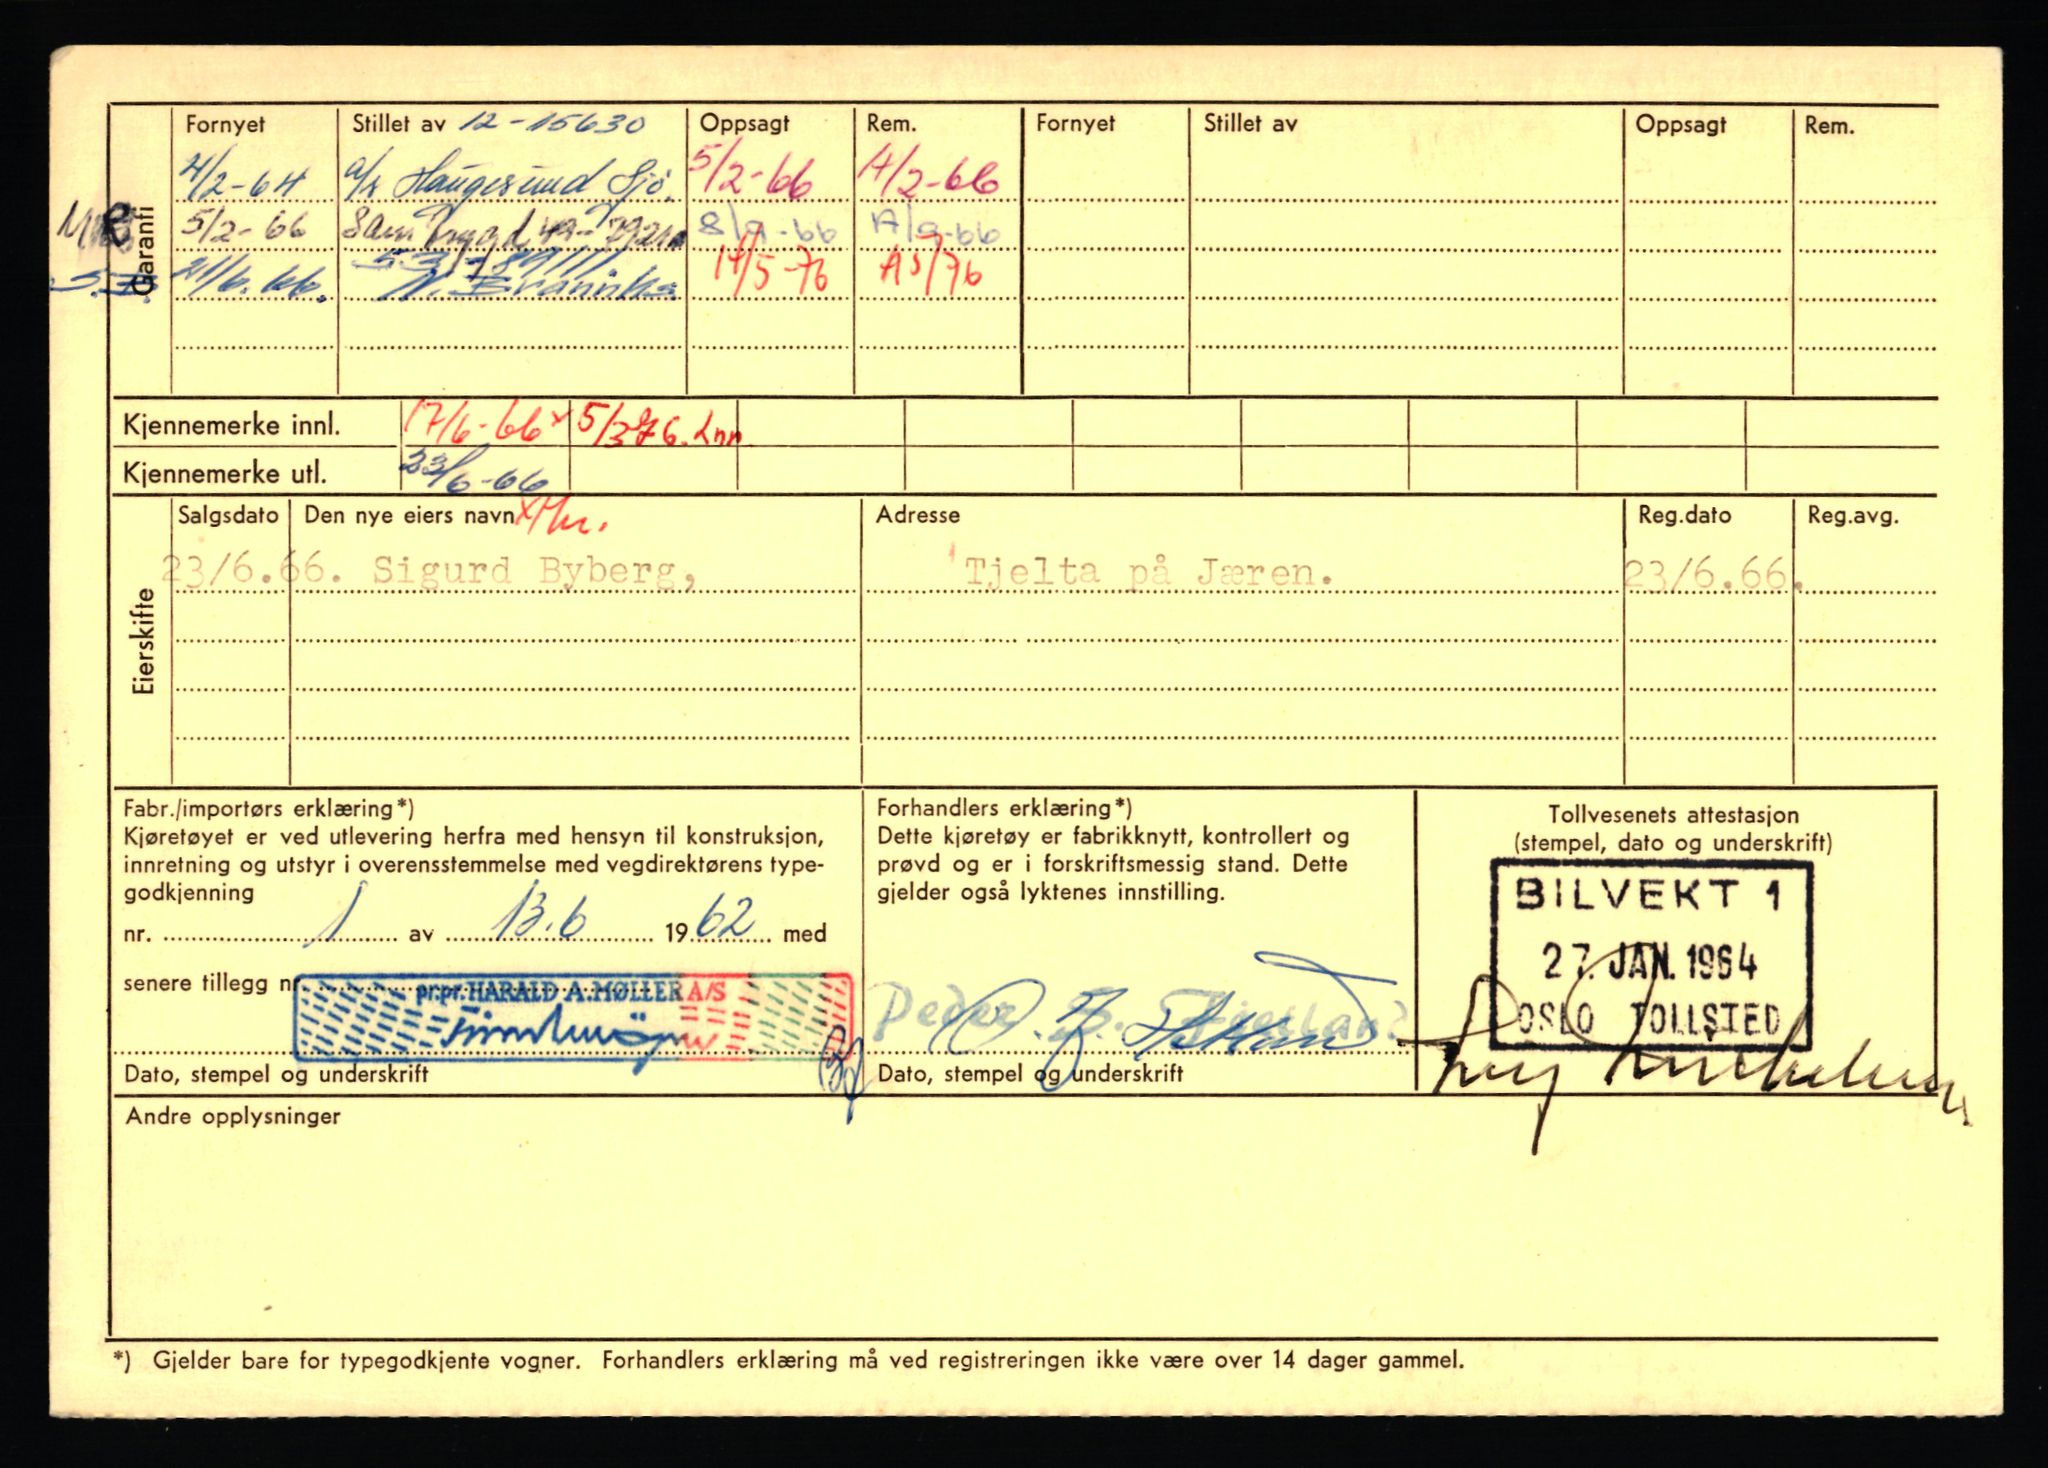 Garanti
Fornyet Stillet av 12-15630 Oppsagt Rem. Fornyet Stillet av Oppsagt Rem.
4/2-64 a/s Haugesund Sjø. 5/2-66 14/2-66
5/2-66 Samtrygd 49- 8/9-66 /9-66
21/6.66. 53 14/5-76 /76
Kjennemerke innl. 17/6-66 x 5/3 76. Inn
Kjennemerke utl. 23/6-66
Eierskifte
Salgsdato Den nye eiers navn Adresse Reg.dato Reg.avg.
23/6.66. Sigurd Byberg, Tjelta på Jæren. 23/6.66.
Fabr./importørs erklæring*)
Kjøretøyet er ved utlevering herfra med hensyn til konstruksjon,
innretning og utstyr i overensstemmelse med vegdirektørens type-
godkjenning
nr. 1 av 13.6 1962 med
senere tillegg nr.
pr.pr. HARALD A. MØLLER A/S
Dato, stempel og underskrift
Forhandlers erklæring*)
Dette kjøretøy er fabrikknytt, kontrollert og
prøvd og er i forskriftsmessig stand. Dette
gjelder også lyktenes innstilling.
Peder
Dato, stempel og underskrift
Tollvesenets attestasjon
(stempel, dato og underskrift)
BILVEKT 1
27. JAN. 1964
OSLO TOLLSTED
Andre opplysninger
*) Gjelder bare for typegodkjente vogner. Forhandlers erklæring må ved registreringen ikke være over 14 dager gammel.